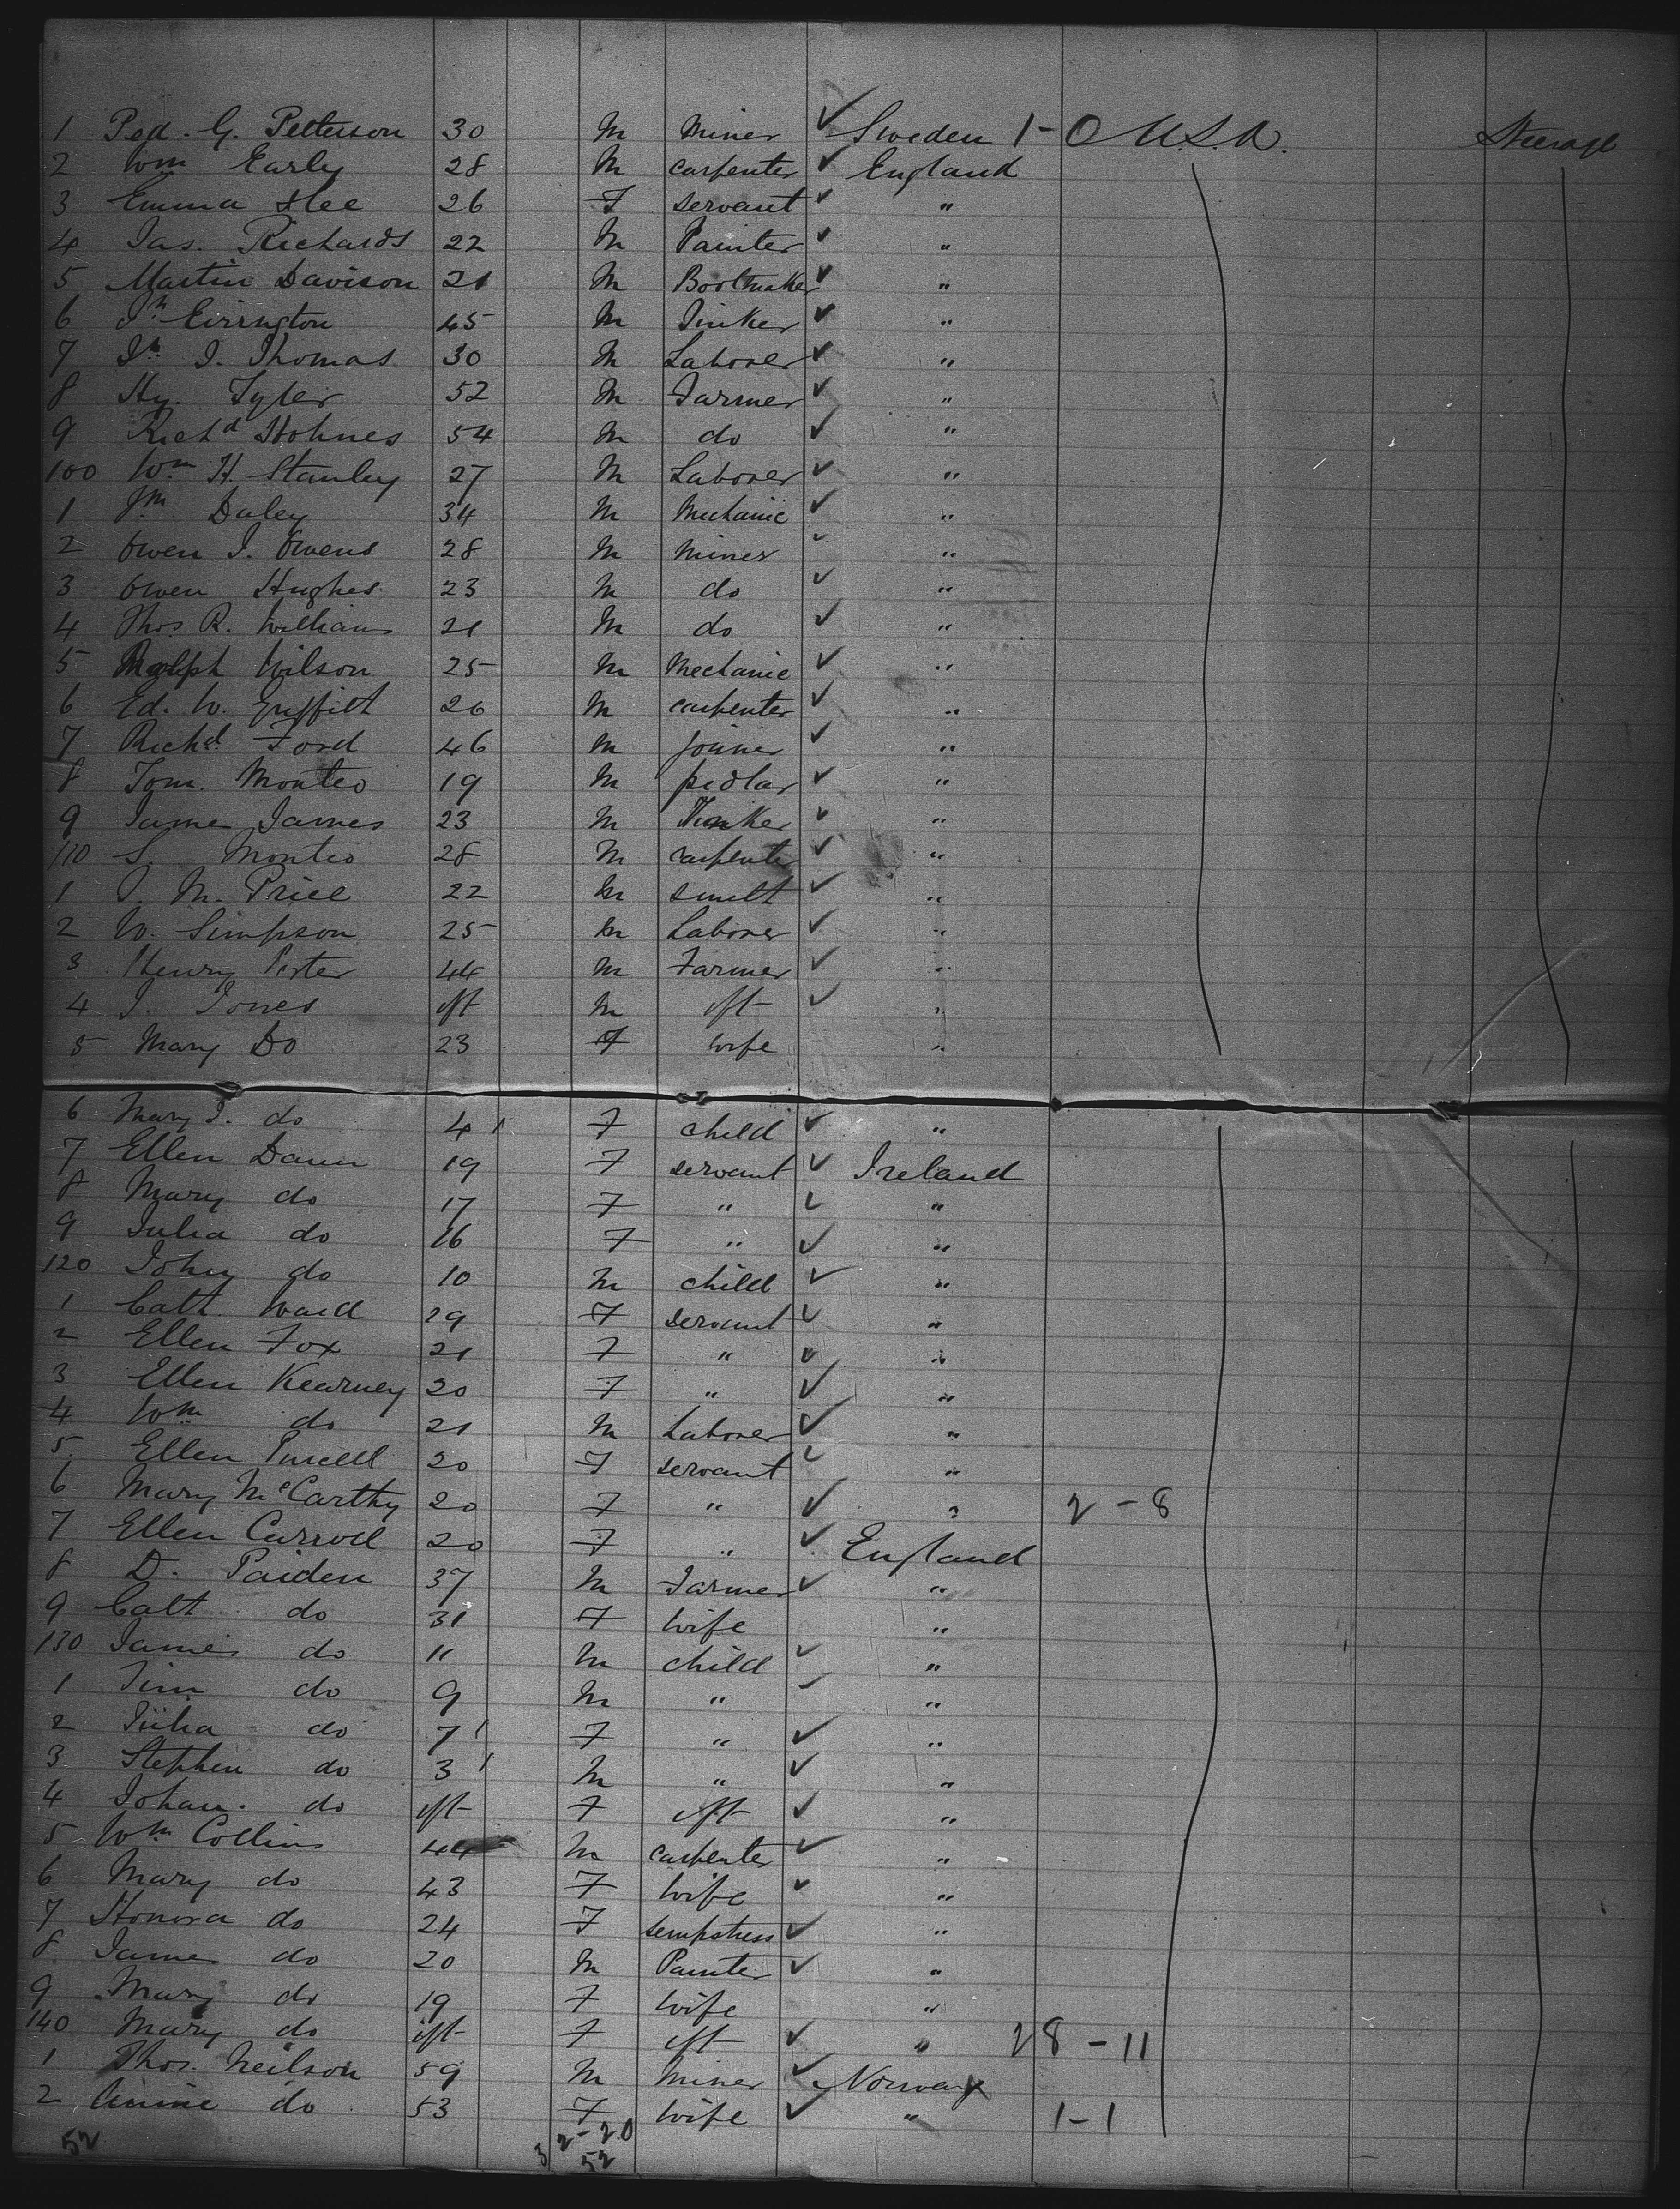 1 Ped. G. Petterson 30 M Miner ✓ Sweden 1-0 U.S.A. Steerage
2 Wm Early 28 M carpenter ✓ England
3 Emma Slee 26 F servant ✓ "
4 Jas. Richards 22 M Painter ✓ "
5 Martin Davison 21 M Bootmaker ✓ "
6 Jn Eirrington 45 M Tinker ✓ "
7 Jn J. Thomas 30 M Laborer ✓ "
8 Hy. Tyler 52 M Farmer ✓ "
9 Richd Hohnes 54 M do ✓ "
100 Wm H. Stanley 27 M Laborer ✓ "
1 Daley 34 M Mechanic ✓ "
2 Owen J. Owens 28 M miner ✓ "
3 Owen Hughes 23 M do ✓ "
4 Thos R. Williams 21 M do ✓ "
5 Ralph Wilson 25 M Mechanic ✓ "
6 Ed. W. Griffith 26 M carpenter ✓ "
7 Richd. Ford 46 M joiner ✓ "
8 Tom. Monteo 19 M pedlar ✓ "
9 James James 23 M Tinker ✓ "
110 S. Monteo 28 M carpenter ✓ "
1 J. M. Price 22 M smith ✓ "
2 W. Simpson 25 M Laborer ✓ "
3 Henry Pester 44 M Farmer ✓ "
4 J. Jones ift M ift ✓ "
5 Mary Do 23 F wife "
6 Mary J. do 4 F child ✓ "
7 Ellen Daun 19 F servant ✓ Ireland
8 Mary do 17 F " ✓ "
9 Julia do 16 F " ✓ "
120 John do 10 M child ✓ "
1 Cath Ward 29 F servant ✓ "
2 Ellen Fox 21 F " ✓ "
3 Ellen Kearney 20 F " ✓ "
4 Wm do 21 M Laborer ✓ "
5 Ellen Purcell 20 F servant ✓ "
6 Mary McCarthy 20 F " ✓ " 2-8
7 Ellen Carroll 20 F " ✓ England
8 D. Paiden 37 M Farmer ✓ "
9 Cath do 31 F wife "
130 James do 11 M child ✓ "
1 Tim do 9 M " ✓ "
2 Julia do 7 F " ✓ "
3 Stephen do 3 M " ✓ "
4 Johan. do ift F ift ✓ "
5 Wm Collins 44 M carpenter ✓ "
6 Mary do 43 F wife ✓ "
7 Honora do 24 F sempstress ✓ "
8 James do 20 M Painter ✓ "
9 Mary do 19 F wife "
140 Mary do ift F ift ✓ " 28-11
1 Thos. Neilson 59 M miner ✓ Norway
2 Annie do 53 F wife ✓ " 1-1
52 32-20
52